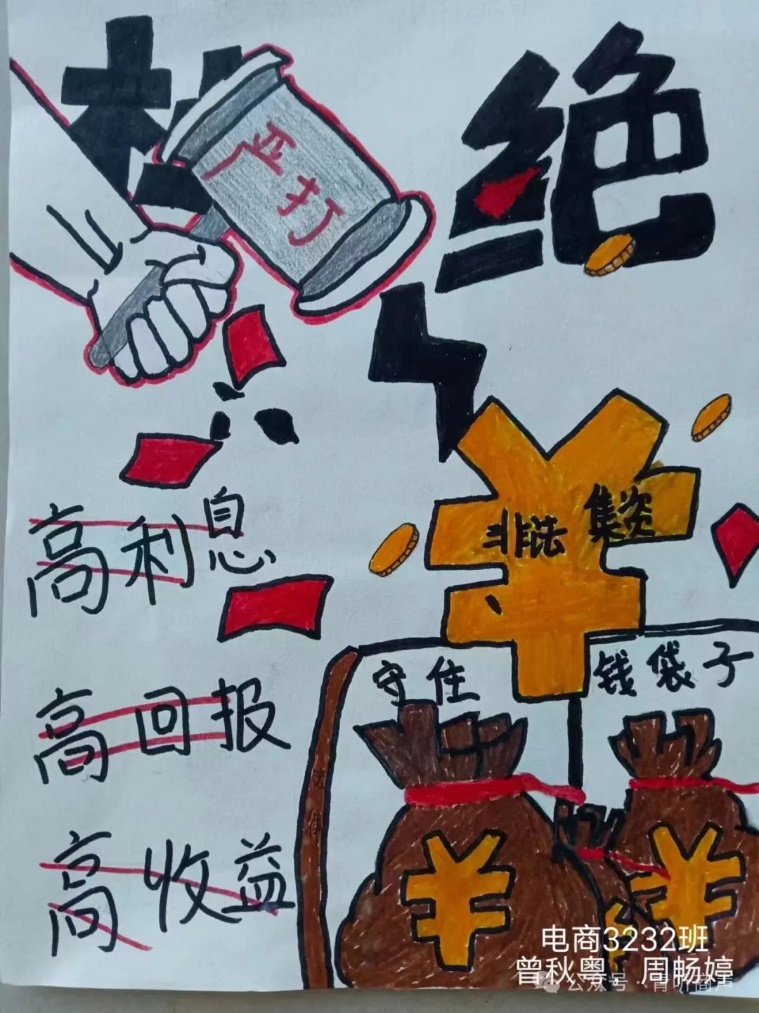 绝
严打
非法集资
高利息
守住 钱袋子
高回报
高收益
电商3232班
曾秋粤 周畅婷
公众号